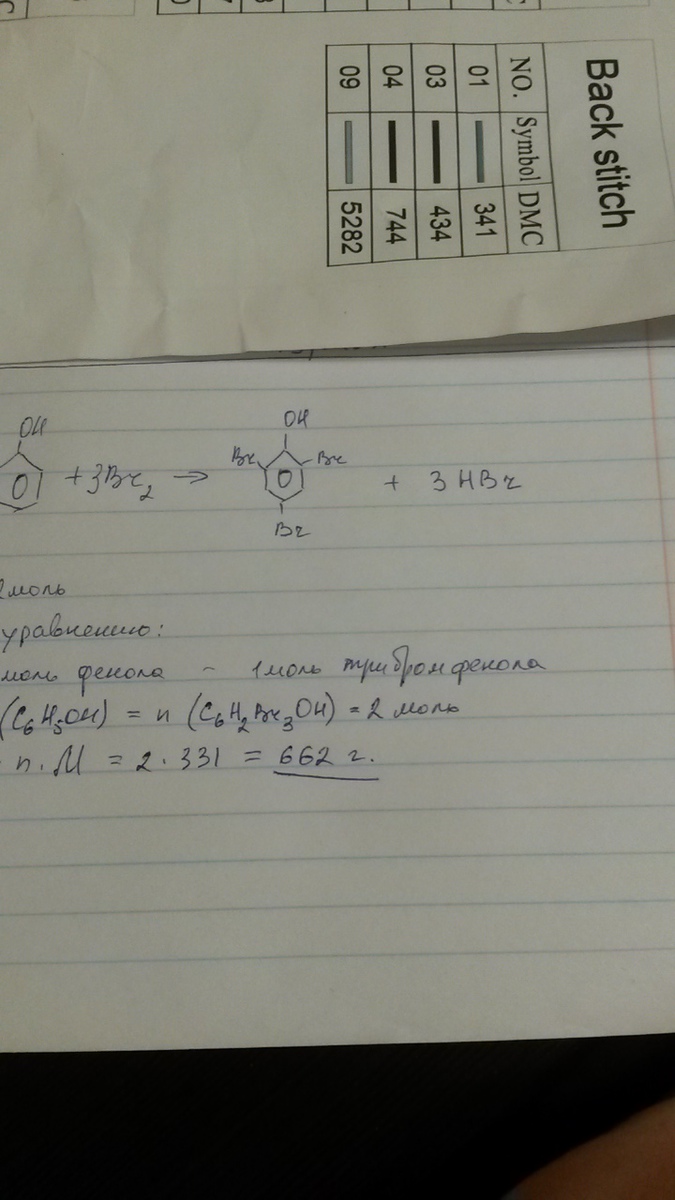 Back stitch
NO. Symbol DMC
01 341
03 434
04 744
09 5282
OH OH
+ 3Br₂ → Br Br + 3 HBr
Br
2 моль
уравнению:
моль фенола – 1 моль трибромфенола
(C₆H₅OH) = n (C₆H₂Br₃OH) = 2 моль
n · M = 2 · 331 = 662 г.